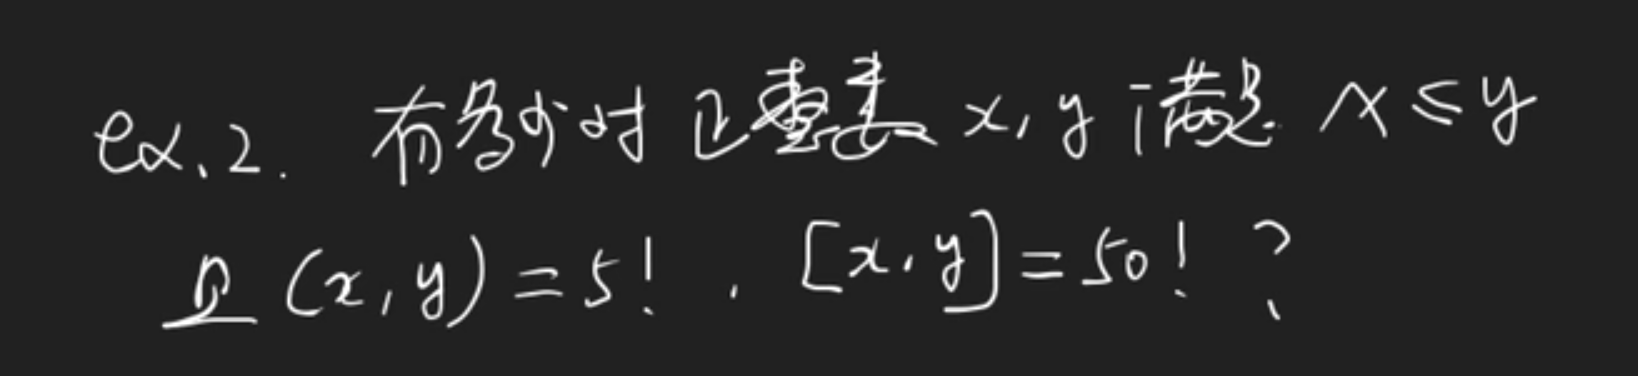 ex.2. 有多少对正整数 x,y 满足 x≤y
且 (x,y)=5!, [x,y]=50! ?